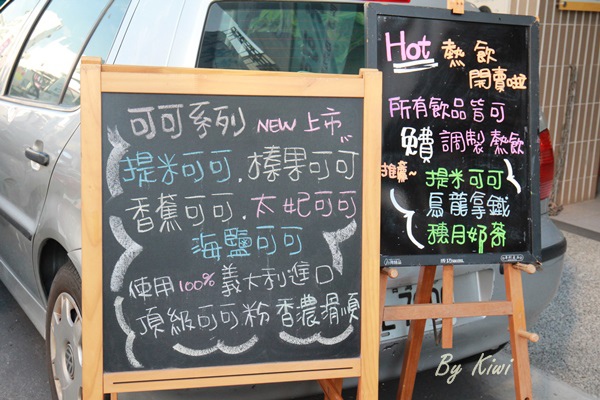 可可系列 NEW 上市
提米可可.榛果可可
香蕉可可.太妃可可
海鹽可可
使用100%義大利進口
頂級可可粉 香濃滑順
Hot 熱飲
開賣啦
所有飲品皆可
免費調製熱飲
推薦~
提米可可
烏龍拿鐵
穗月奶茶
By Kiwi